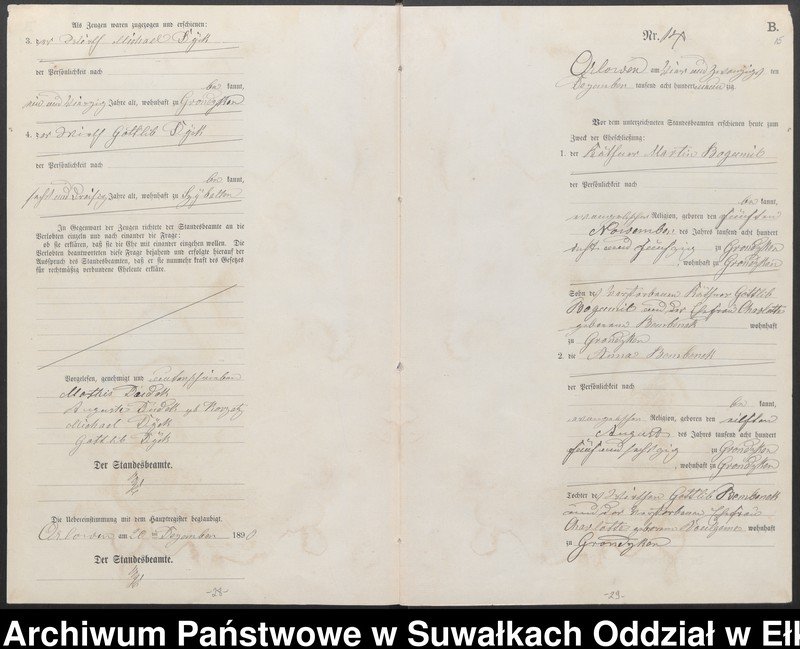 Als Zeugen waren zugezogen und erschienen:
3. der Michael Dzick
der Persönlichkeit nach
be kannt,
ein und vierzig Jahre alt, wohnhaft zu Grondzken
4. der Gottlib Dzick
der Persönlichkeit nach
be kannt,
sechs und dreißig Jahre alt, wohnhaft zu
In Gegenwart der Zeugen richtete der Standesbeamte an die
Verlobten einzeln und nach einander die Frage:
ob sie erklären, daß sie die Ehe mit einander eingehen wollen. Die
Verlobten beantworteten diese Frage bejahend und erfolgte hierauf der
Ausspruch des Standesbeamten, daß er sie nunmehr kraft des Gesetzes
für rechtmäßig verbundene Eheleute erkläre.
Vorgelesen, genehmigt und unterschrieben
Auguste
Michael
Gottlib
Der Standesbeamte.
Die Uebereinstimmung mit dem Hauptregister beglaubigt.
Orlowen am 20 Dezember 1890
Der Standesbeamte.
-28-
B.
Nr.
Orlowen am vier und zwanzigsten
Dezember tausend acht hundert neunzig.
Vor dem unterzeichneten Standesbeamten erschienen heute zum
Zweck der Eheschließung:
1. der Käthner Martin Bogumil
der Persönlichkeit nach
be kannt,
evangelischer Religion, geboren den fünften
November des Jahres tausend acht hundert
acht und fünfzig zu Grondzken
, wohnhaft zu Grondzken
Sohn des verstorbenen Käthner Gottlib
Bogumil und der Ehefrau Charlotte
geborenen Bembenek wohnhaft
zu Grondzken
2. die Anna Bembenek
der Persönlichkeit nach
be kannt,
evangelischer Religion, geboren den elften
August des Jahres tausend acht hundert
fünf und sechszig zu Grondzken
, wohnhaft zu Grondzken
Tochter des Gottlib Bembenek
und der verstorbenen Ehefrau
Charlotte geborenen wohnhaft
zu Grondzken
-29-
Archiwum Państwowe w Suwałkach Oddział w Eł